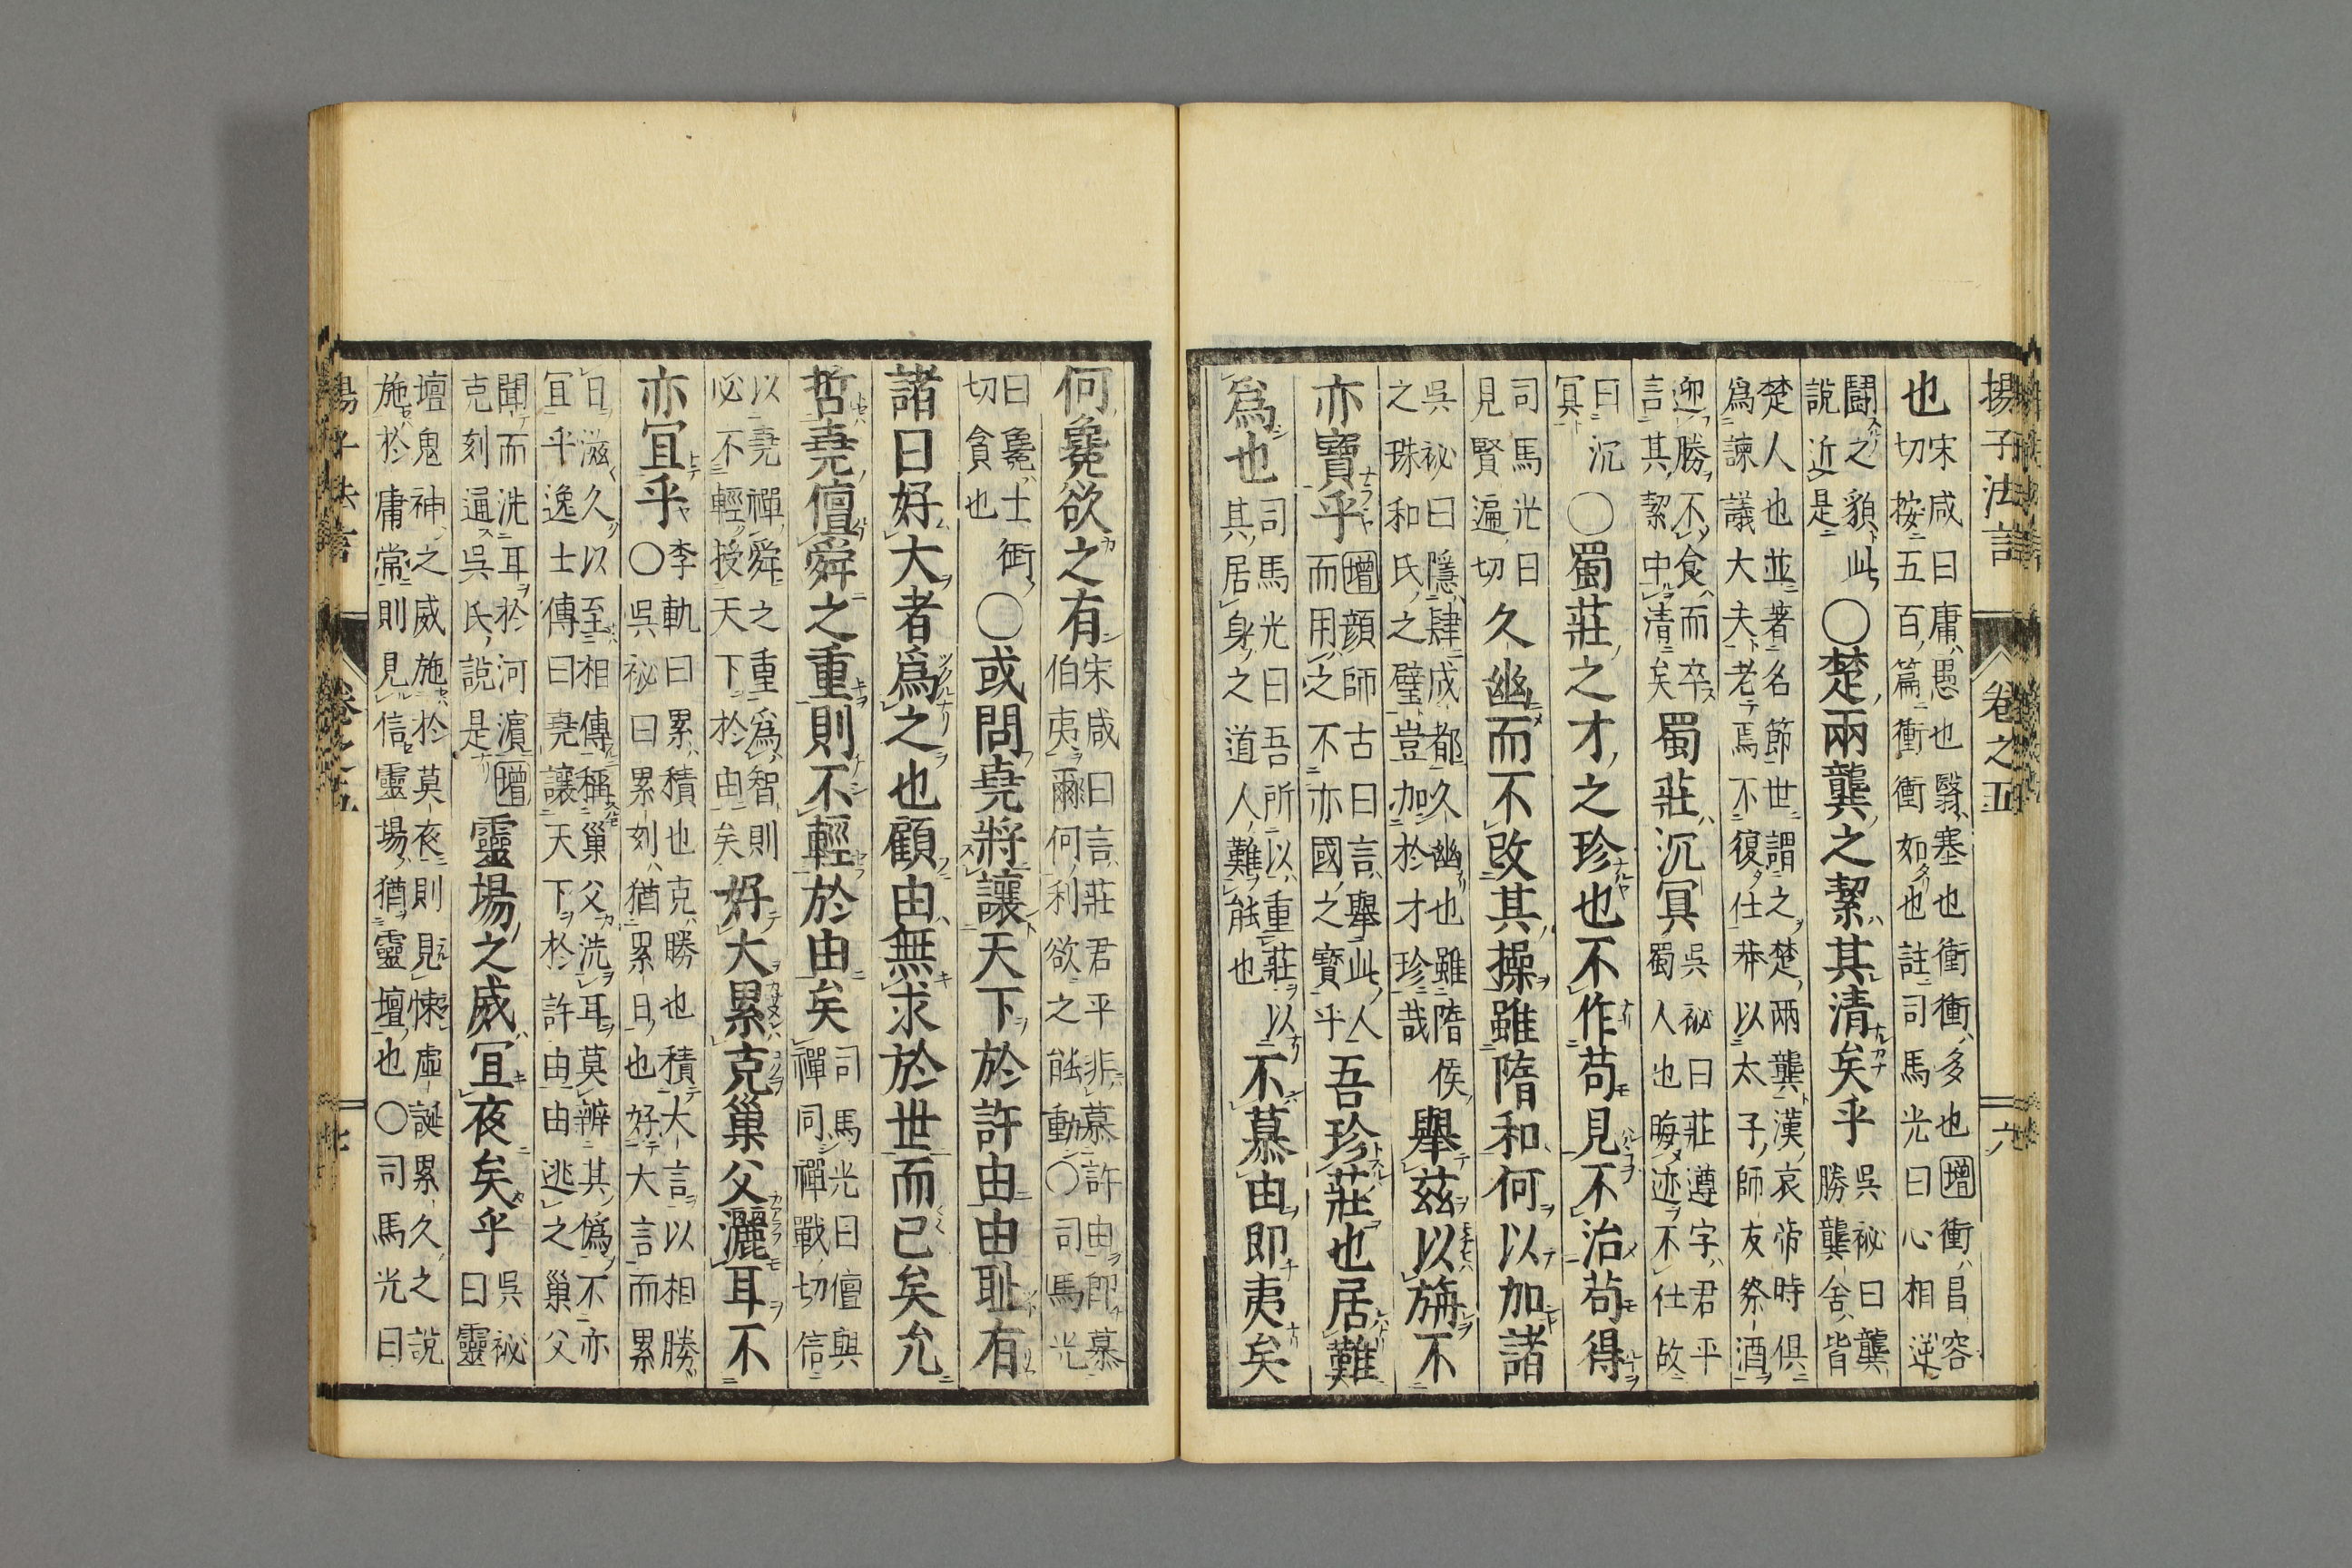 揚子法言　卷之五　六
也
宋咸曰庸愚也翳塞也衝衝多也增衝昌容
切按五百篇衝衝如也註司馬光曰心相逆
鬪之貌此
說近是
○楚兩龔之絜其清矣乎
吳祕曰龔
勝龔舍皆
楚人也並著名節世謂之楚兩龔漢哀帝時俱
爲諫議大夫老焉不復仕莽以太子師友祭酒
迎勝不食而卒
言其絜中清矣
蜀莊沉冥
吳祕曰莊遵字君平
蜀人也晦迹不仕故
曰沉
冥
○蜀莊之才之珍也不作苟見不治苟得
司馬光曰
見賢遍切
久幽而不改其操雖隋和何以加諸
吳祕曰隱肆成都久幽也雖隋侯
之珠和氏之璧豈加於才珍哉
舉茲以旃不
亦寶乎
增顔師古曰言舉此人
而用之不亦國之寶乎
吾珍莊也居難
爲也
司馬光曰吾所以重莊以
其居身之道人難能也
不慕由即夷矣
何毚欲之有
宋咸曰言莊君平非慕許由即慕
伯夷爾何利欲之能動○司馬光
曰毚士衘
切貪也
○或問堯將讓天下於許由由耻有
諸曰好大者爲之也顧由無求於世而已矣允
哲堯儃舜之重則不輕於由矣
司馬光曰儃與
禪同禪戰切信
以堯禪舜之重爲智則
必不輕授天下於由矣
好大累克巢父灑耳不
亦冝乎
李軌曰累積也克勝也積大言以相勝
○吳祕曰累刻猶累日也好大言而累
日滋久以至相傳稱巢父洗耳莫辨其僞不亦
冝乎逸士傳曰堯讓天下於許由由逃之巢父
聞而洗耳於河濵增
克刻通吳氏說是
靈場之威冝夜矣乎
吳祕
曰靈
壇鬼神之威施於莫夜則見悚虛誕累久之說
施於庸常則見信靈場猶靈壇也○司馬光曰
揚子法言　卷之五　七